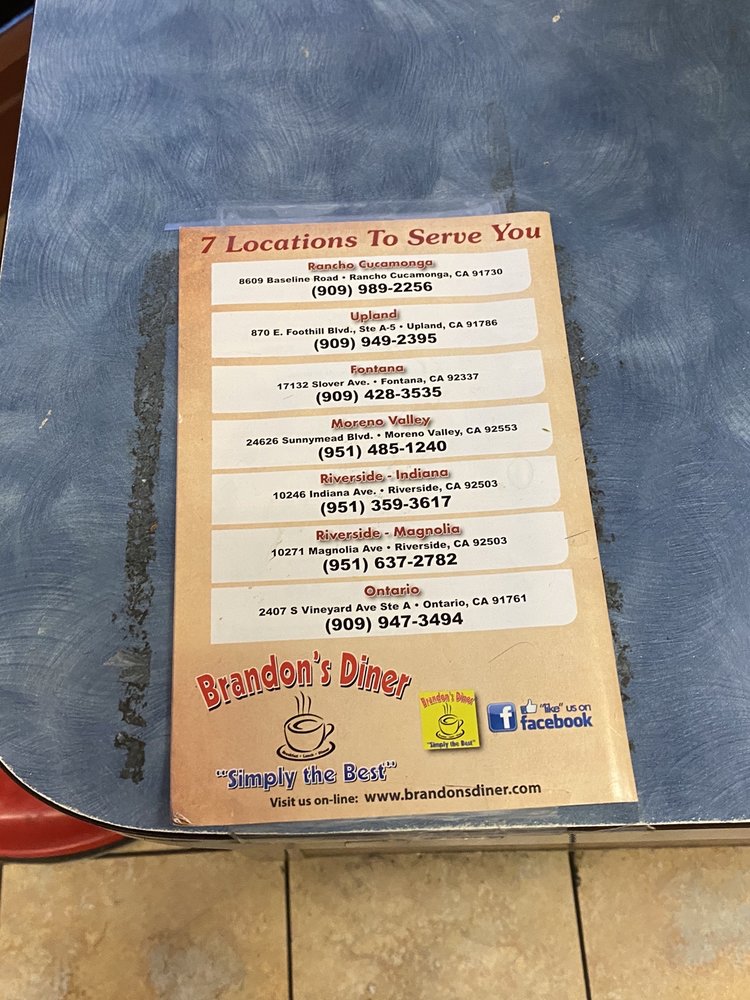 7 Locations To Serve You
Rancho Cucamonga
8609 Baseline Road • Rancho Cucamonga, CA 91730
(909) 989-2256
Upland
870 E. Foothill Blvd., Ste A-5 • Upland, CA 91786
(909) 949-2395
Fontana
17132 Slover Ave. • Fontana, CA 92337
(909) 428-3535
Moreno Valley
24626 Sunnymead Blvd. • Moreno Valley, CA 92553
(951) 485-1240
Riverside - Indiana
10246 Indiana Ave. • Riverside, CA 92503
(951) 359-3617
Riverside - Magnolia
10271 Magnolia Ave • Riverside, CA 92503
(951) 637-2782
Ontario
2407 S Vineyard Ave Ste A • Ontario, CA 91761
(909) 947-3494
Brandon's Diner
Breakfast • Lunch • Dinner
"Simply the Best"
Brandon's Diner
"Simply the Best"
f "like" us on
facebook
Visit us on-line: www.brandonsdiner.com